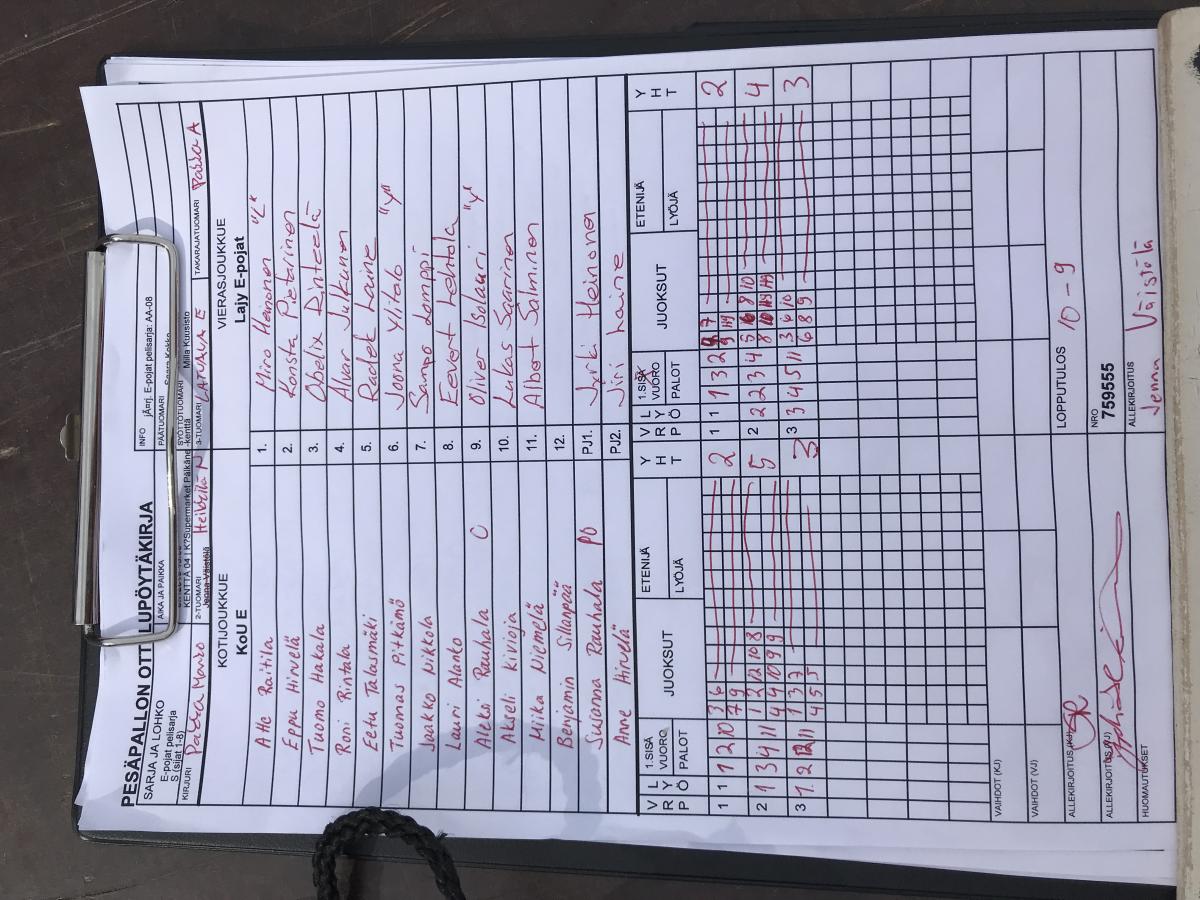 PESÄPALLON OTTELUPÖYTÄKIRJA
SARJA JA LOHKO
E-pojat pelisarja
S (sijat 1-8)
AIKA JA PAIKKA
KENTTÄ 04 | K?Supermarket Pälkäne -kenttä
INFO jÄ¤rj. E-pojat pelisarja: AA-08
PÄÄTUOMARI
SYÖTTÖTUOMARI Milla Kuusisto
KIRJURI
2-TUOMARI Jenna Väistölä Heikkilä N
3-TUOMARI LATVALA E
TAKARAJATUOMARI
KOTIJOUKKUE
KoU E
VIERASJOUKKUE
Lajy E-pojat
Atte Raitila 1. Miro Heinonen "L"
Eppu Hirvelä 2. Konsta Pietarinen
Tuomo Hakala 3. Obelix Rinteelä
Roni Rintala 4. Alvar Julkunen
Eetu Talasmäki 5. Radek Laine
Tuomas Pitkämö 6. Joona Ylitalo "Y"
Jaakko Nikkola 7. Sampo Lomppi
Lauri Alanko 8. Eevert Lehtola
Aleksi Rauhala C 9. Oliver Isolauri "Y"
Akseli Kivioja 10. Lukas Saarinen
Miika Niemelä 11. Albert Salminen
Benjamin Sillanpää 12.
Susanna Rauhala PJ PJ1. Jyrki Heinonen
Anne Hirvelä PJ2. Jiri Laine
V L 1.SISÄ JUOKSUT ETENIJÄ Y V L 1.SISÄ JUOKSUT ETENIJÄ Y
R Y VUORO H R Y VUORO H
P Ö PALOT LYÖJÄ T P Ö PALOT LYÖJÄ T
1 1 1 2 10 3 6 2 1 1 1 3 2 7 2
7 9 9
2 1 3 4 11 1 2 12 10 8 5 2 2 2 3 4 5 8 10 4
4 4 10 9 9 8 10
3 1 2 12 11 1 3 7 3 3 3 4 5 11 3 6 10 3
4 5 5 6 8 9
VAIHDOT (KJ)
VAIHDOT (VJ)
ALLEKIRJOITUS (KJ) SR
LOPPUTULOS 10 - 9
ALLEKIRJOITUS (VJ)
NRO
759555
HUOMAUTUKSET
ALLEKIRJOITUS
Jenna Väistölä